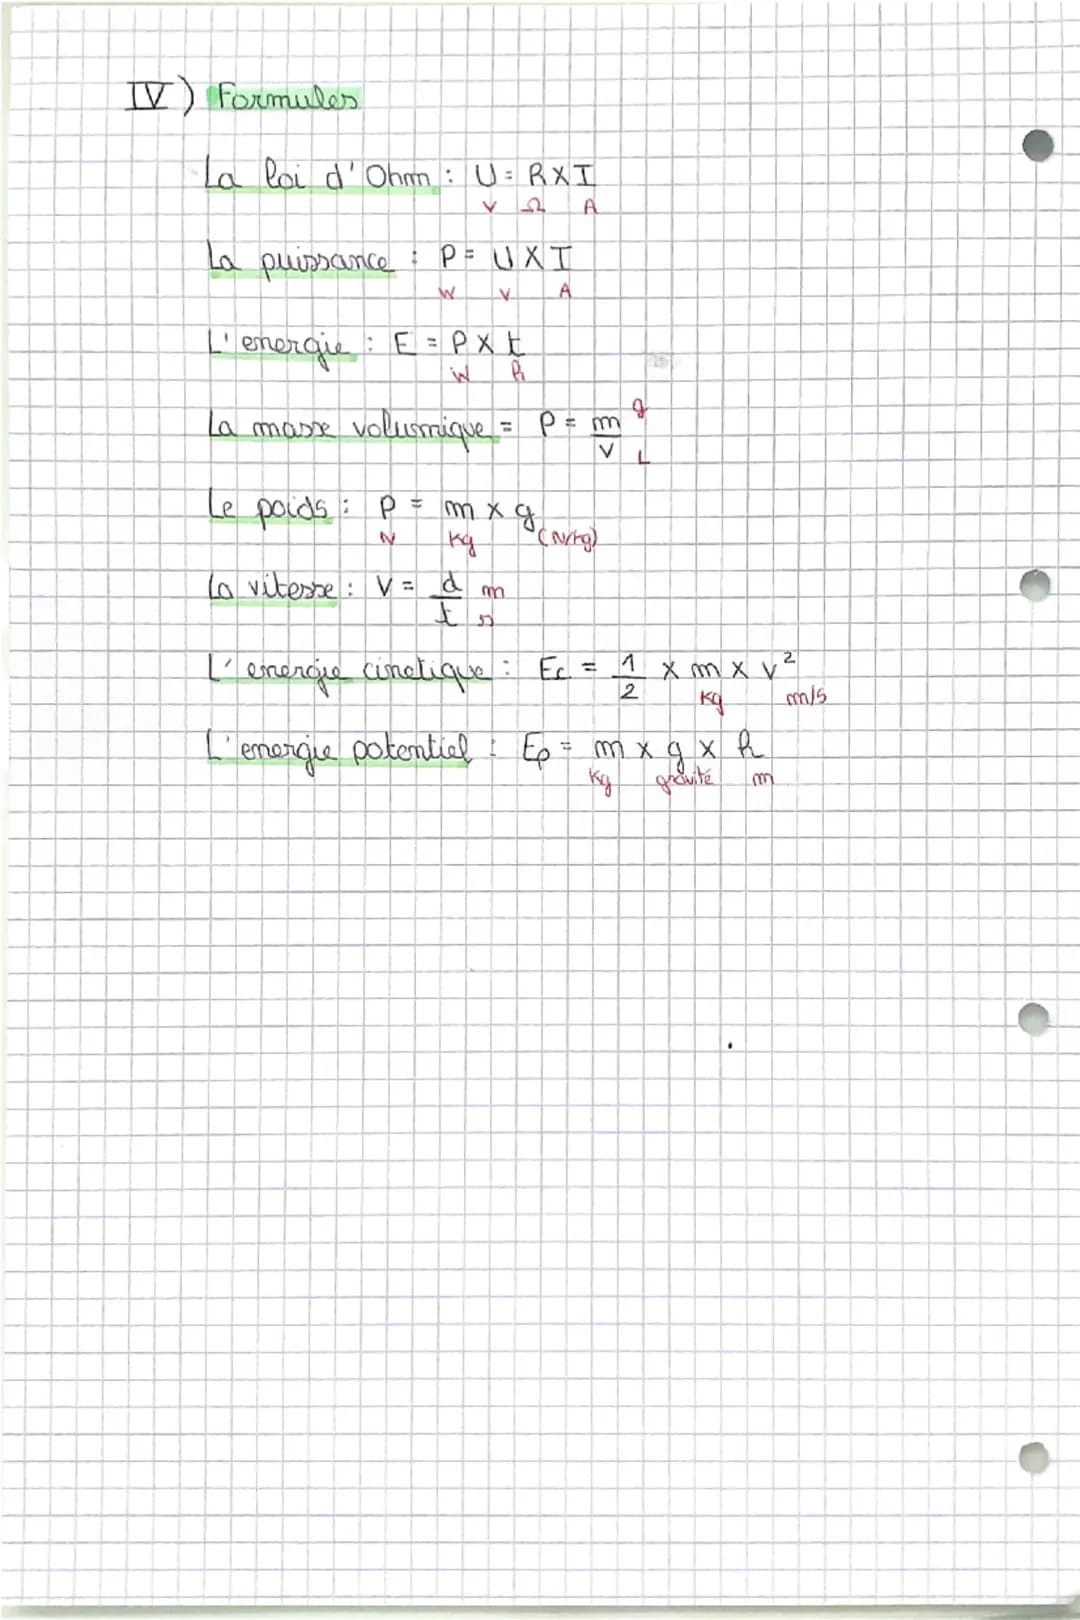 IV) Formules
La loi d'Ohm : U = R X I
V Ω A
La puissance : P = U X I
W V A
L'energie : E = P X t
W h
La masse volumique = P = m/V g L
Le poids : P = m x g
N Kg (N/kg)
La vitesse : V = d/t m s
L'energie cinetique : Ec = 1/2 x m x v²
Kg m/s
L'energie potentiel : Ep = m x g x h
Kg gravité m